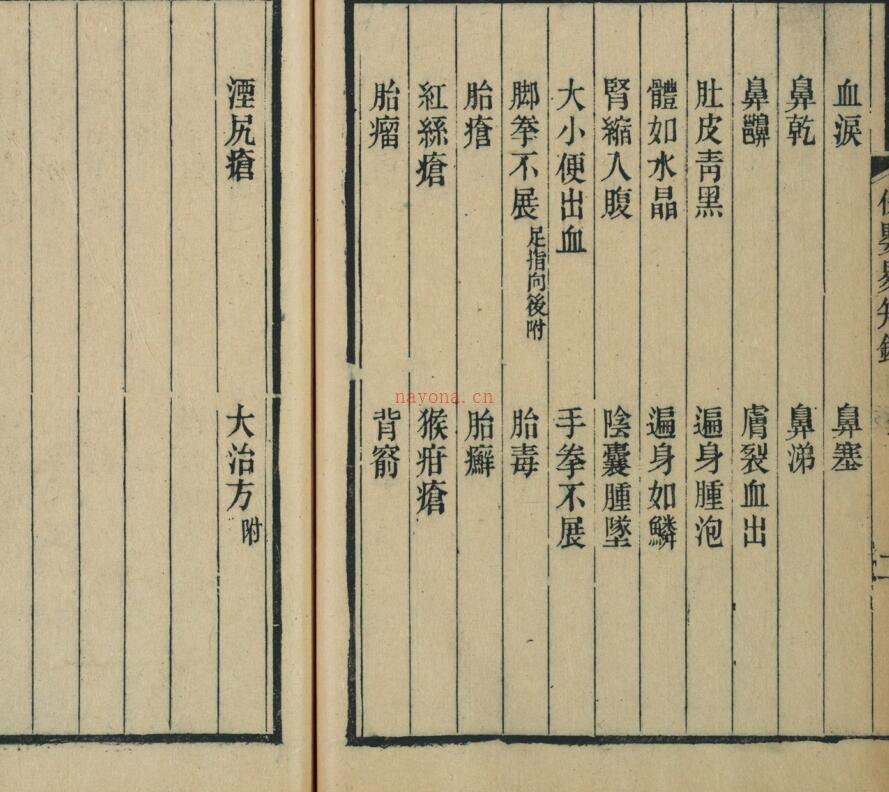 血淚　鼻塞
鼻乾　鼻涕
鼻齆　膚裂血出
肚皮靑黑　遍身腫泡
體如水晶　遍身如鱗
腎縮入腹　陰囊腫墜
大小便出血　手拳不展
脚拳不展足指向後附　胎毒
胎瘡　胎癬
紅絲瘡　猴疳瘡
胎瘤　背
湮尻瘡　大治方附
nayona.cn